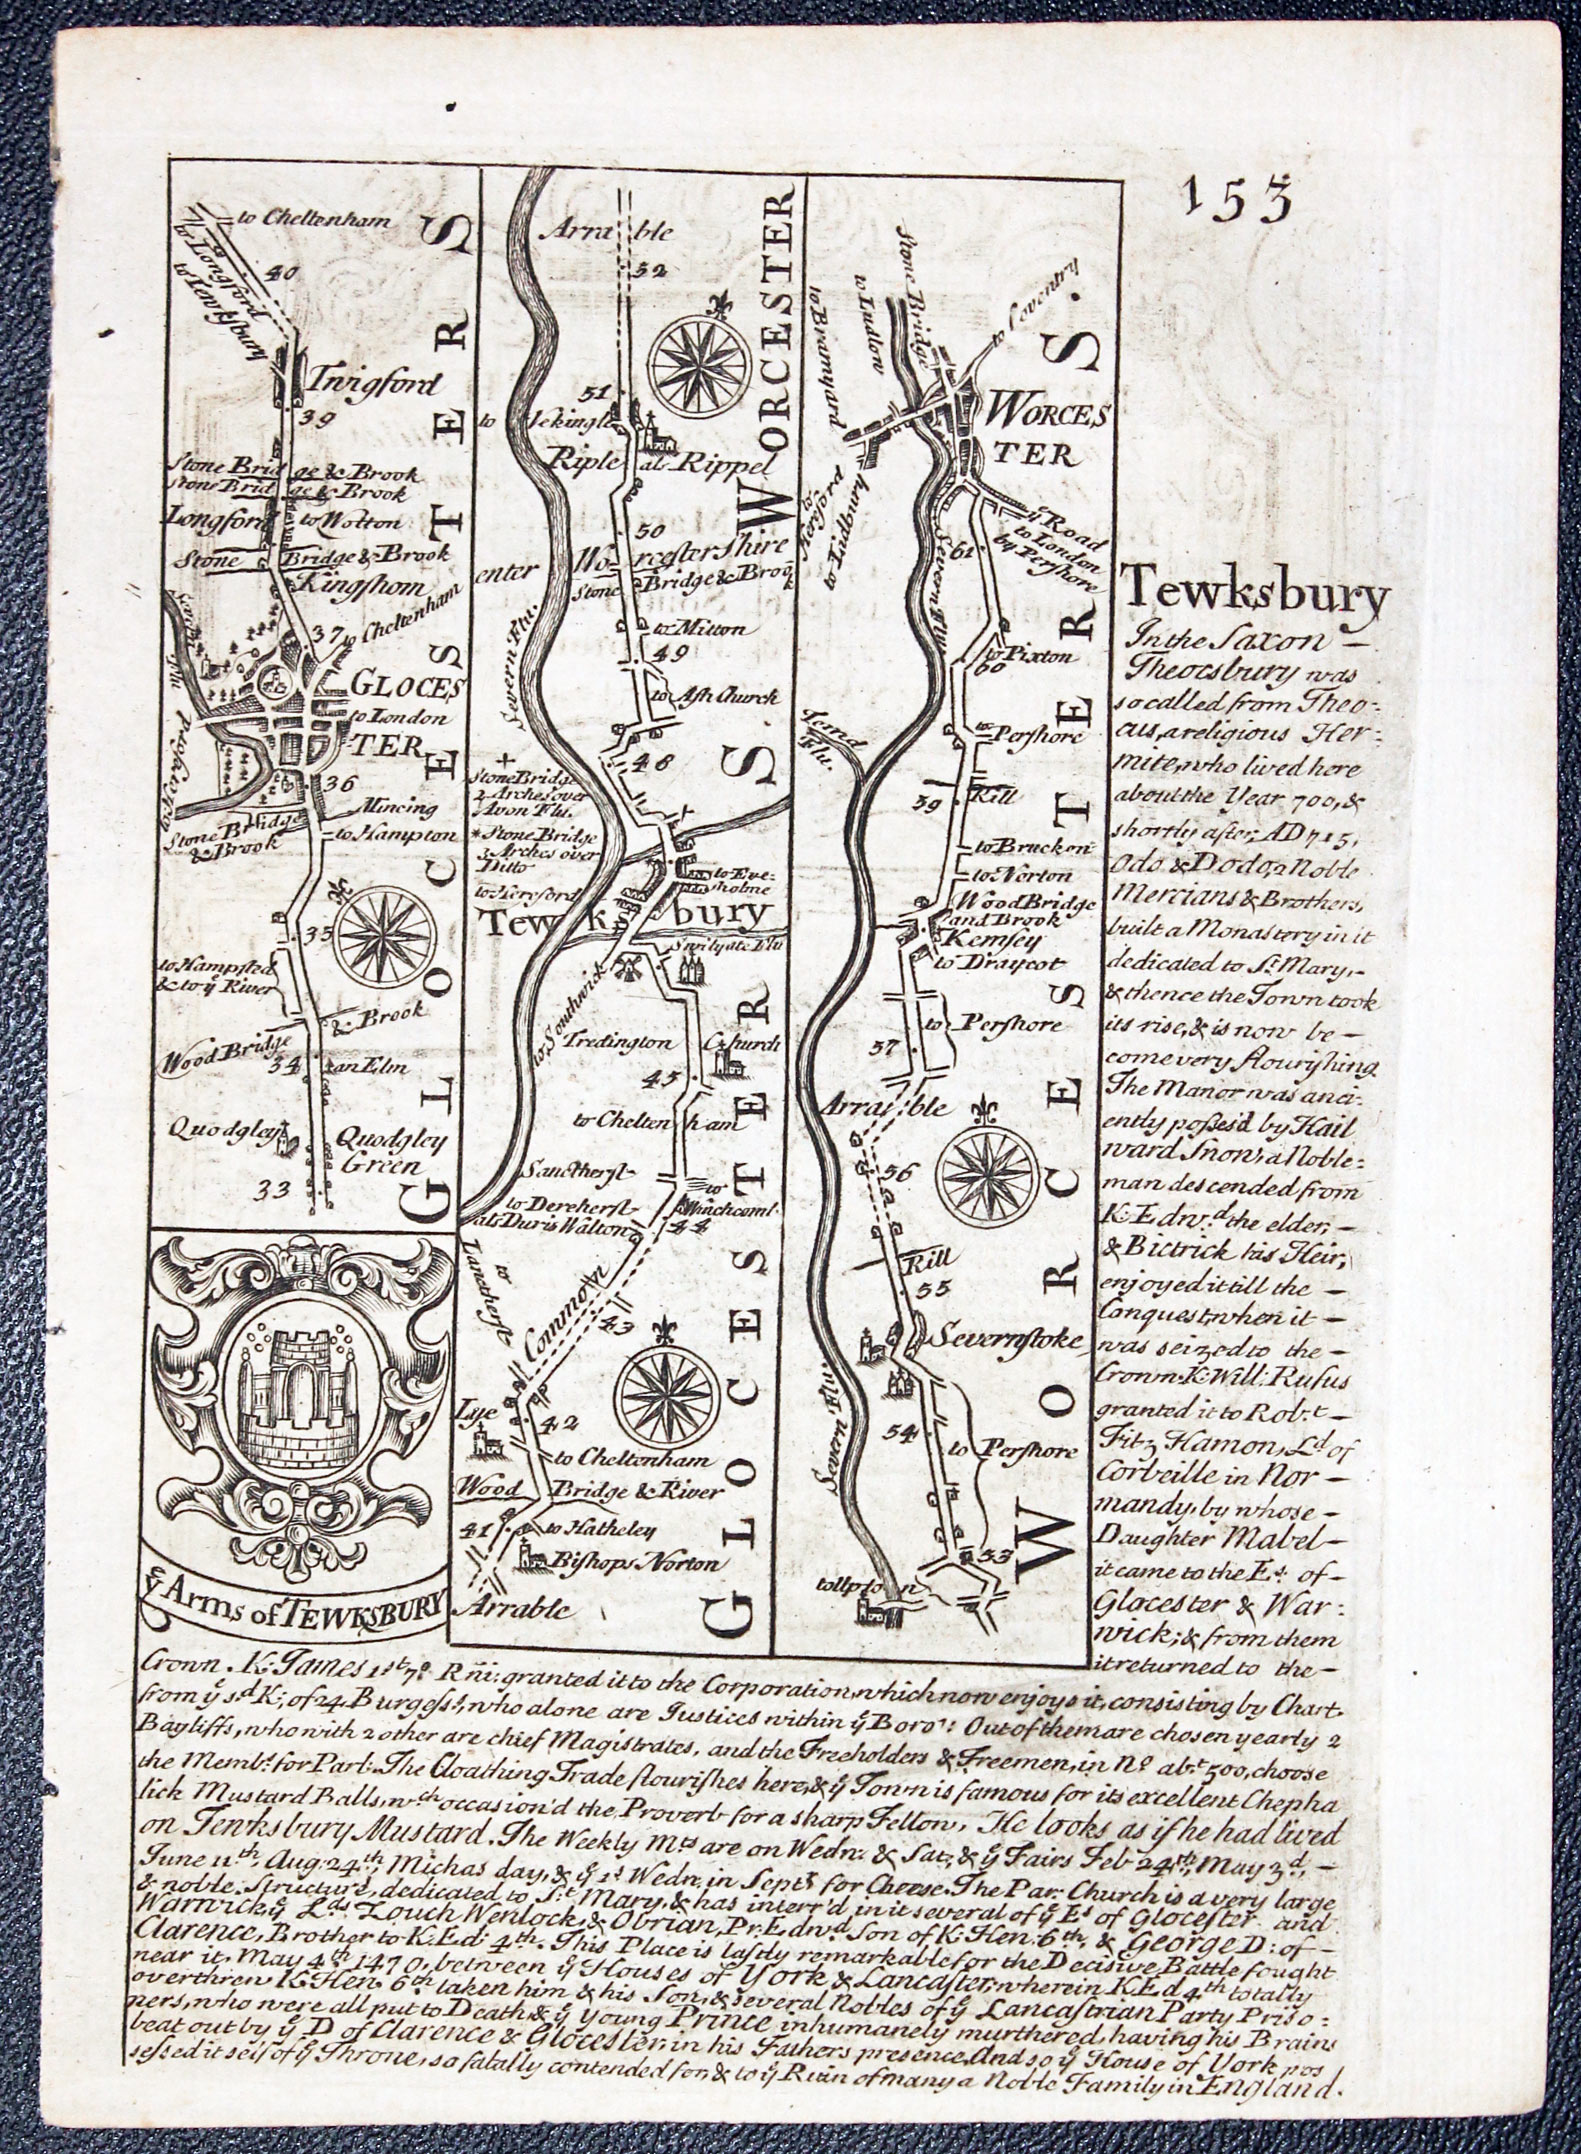 153
to Cheltenham
to Longford
to Tewksbury
40
Twigford
39
Stone Bridge & Brook
Stone Bridge & Brook
Longford
to Wotton
Stone Bridge & Brook
Kingshom
37
to Cheltenham
Severn Flu
GLOCESTER
to London
to Hereford
36
Mincing
to Hampton
Stone Bridge
& Brook
35
to Hampsted
& to ÿ River
& Brook
Wood Bridge
34
an Elm
Quodgley
Quodgley
Green
33
GLOCESTERS
ÿ Arms of TEWKSBURY
Arrable
52
51
to Uckingle
Riple al. Rippel
50
enter Worcestershire
Stone Bridge & Brook
to Mitton
49
to Ash Church
Severn Flu.
48
+
Stone Bridge
2 Arches over
Avon Flu.
* Stone Bridge
3 Arches over
Ditto
to Hereford
to Eve=
sholme
Tewksbury
Swilyate Flu
to Southwick
Tredington Church
45
to Cheltenham
Sanctherst
to Dereherst
al. Duris Walton
to Winchcomb
44
to
Lanctherst
Common
43
Lye
42
to Cheltenham
Wood Bridge & River
41
to Hatheley
Bishops Norton
Arrable
GLOCESTERS
WORCESTER
Stone Bridge
to Ludlow
to Bramyard
to Coventry
WORCESTER
to
Hereford
to Lidbury
ÿ Road
to London
by Pershore
61
Severn Flu
to Pixton
60
Temd
Flu.
to
Pershore
59
Rill
to Bruckon
to Norton
Wood Bridge
and Brook
Kemsey
to Draycot
to Pershore
57
Arrable
56
Rill
55
Severnstoke
54
to Pershore
Severn Flu.
53
to Upton
WORCESTERS.
Tewksbury
In the Saxon –
Theocsbury was
so called from Theo=
cus, a religious Her=
mite, who lived here
about the Year 700, &
shortly after, AD 715,
Odo & Dodo, 2 Noble
Mercians & Brothers,
built a Monastery in it
dedicated to St. Mary, –
& thence the Town took
its rise, & is now be –
come very flourishing.
The Manor was anci=
ently posses'd by Hail
ward Snow, a Noble=
man descended from
K. Edwd. the elder; –
& Bictrick his Heir,
enjoyed it till the –
Conquest, when it –
was seized to the –
Crown. K: Will: Rufus
granted it to Robt. –
Fitz Hamon, Ld of
Corbeille in Nor –
mandy, by whose –
Daughter Mabel –
it came to the Es. of –
Glocester & War=
wick; & from them
it returned to the –
Crown. K: James 1st. 7o. Rñi: granted it to the Corporation, which now enjoys it, consisting by Chart.
from ÿ sd K; of 24 Burgesss. who alone are Justices within ÿ Boro': Out of them are chosen yearly 2
Bayliffs, who with 2 other are chief Magistrates, and the Freeholders & Freemen, in No abt. 500, choose
the Membs. for Parl: The Cloathing Trade flourishes here, & ÿ Town is famous for its excellent Chepha
lick Mustard Balls, wch. occasion'd the Proverb for a sharp Fellow, He looks as if he had lived
on Tewksbury Mustard. The Weekly Mts are on Wedn: & Sat; & ÿ Fairs Feb 24th, May 3d, –
June 11th, Aug: 24th, Michas day, & ÿ 1st Wedn: in Sept. for Cheese. The Par: Church is a very large
& noble Structure, dedicated to St. Mary, & has interr'd in it several of ÿ Es of Glocester and
Warwick, ÿ Lds. Zouch Wenlock, & Obrian, Pr. Edwd. Son of K: Hen: 6th, & George D: of –
Clarence, Brother to K: Ed: 4th. This Place is lastly remarkable for the Decisive Battle fought
near it, May 4th, 1470, between ÿ Houses of York & Lancaster; wherein K. Ed. 4th totally
overthrew K: Hen. 6th taken him & his Son, & several Nobles of ÿ Lancastrian Party Priso=
ners, who were all put to Death, & ÿ young Prince inhumanely murthered, having his Brains
beat out by ÿ D of Clarence & Glocester, in his Fathers presence. And so ÿ House of York pos
sessed it self of ÿ Throne, so fatally contended for, & to ÿ Ruin of many a Noble Family in England.